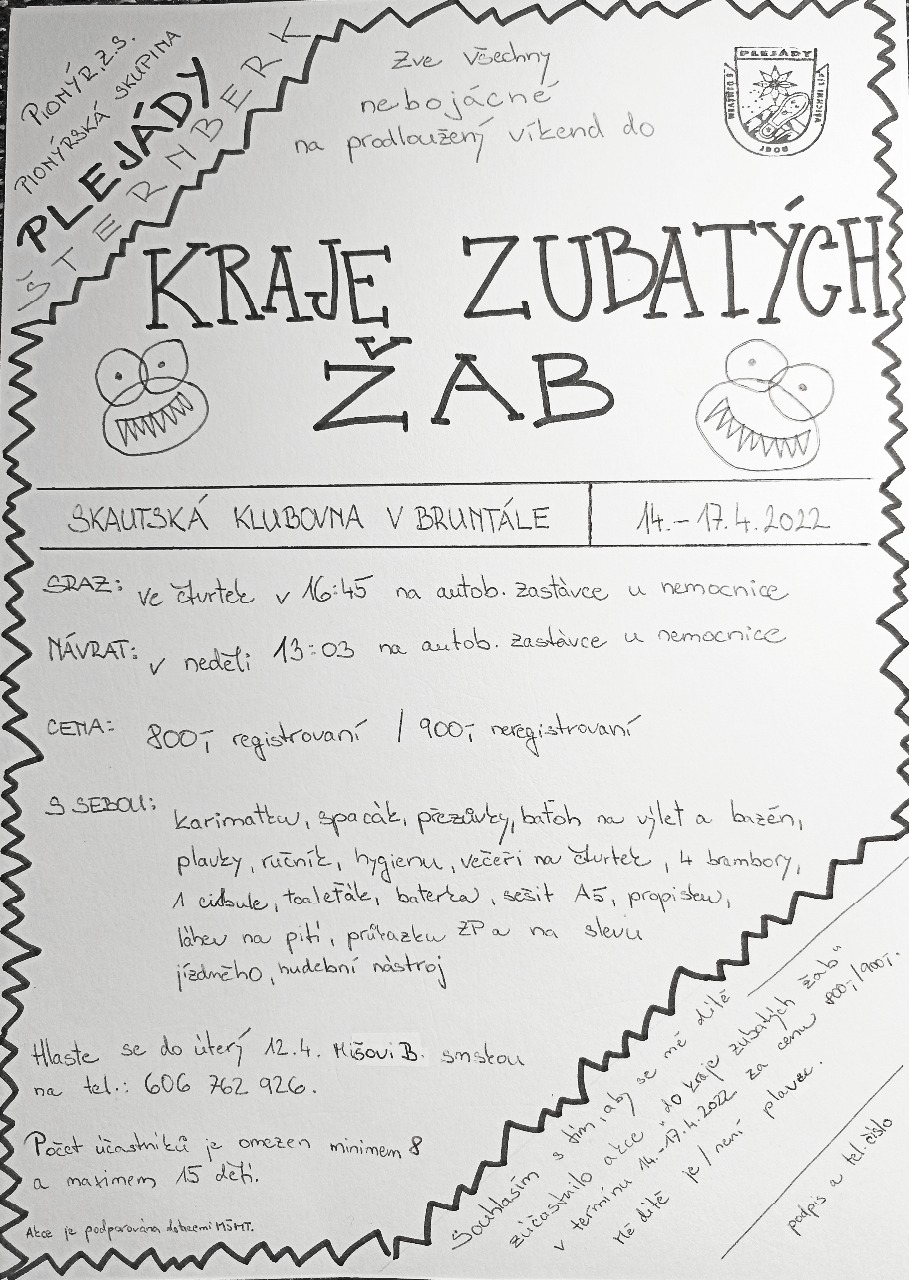 PIONÝR, Z.S.
PIONÝRSKÁ SKUPINA
PLEJÁDY
ŠTERNBERK
Zve všechny
nebojácné
na prodloužený víkend do
PLEJÁDY
JDOU
KRAJE ZUBATÝCH
ŽAB
SKAUTSKÁ KLUBOVNA V BRUNTÁLE
14.-17.4.2022
SRAZ: ve čtvrtek v 16:45 na autob. zastávce u nemocnice
NÁVRAT: v neděli 13:03 na autob. zastávce u nemocnice
CENA: 800,- registrovaní / 900,- neregistrovaní
S SEBOU: karimatku, spacák, přezůvky, baťoh na výlet a bazén,
plavky, ručník, hygienu, večeři na čtvrtek, 4 brambory,
1 cibule, toaleťák, baterka, sešit A5, propisku,
láhev na pití, průkazku ZP a na slevu
jízdného, hudební nástroj
Hlaste se do úterý 12.4. Míšovi B. smskou
na tel.: 606 762 926.
Počet účastníků je omezen minimem 8
a maximem 15 dětí.
Akce je podporována dotacemi MŠMT.
Souhlasím s tím, aby se mé dítě
zúčastnilo akce "do kraje zubatých žab"
v termínu 14.-17.4.2022 za cenu 800,-/900,-.
Mé dítě je/není plavec.
podpis a tel. číslo